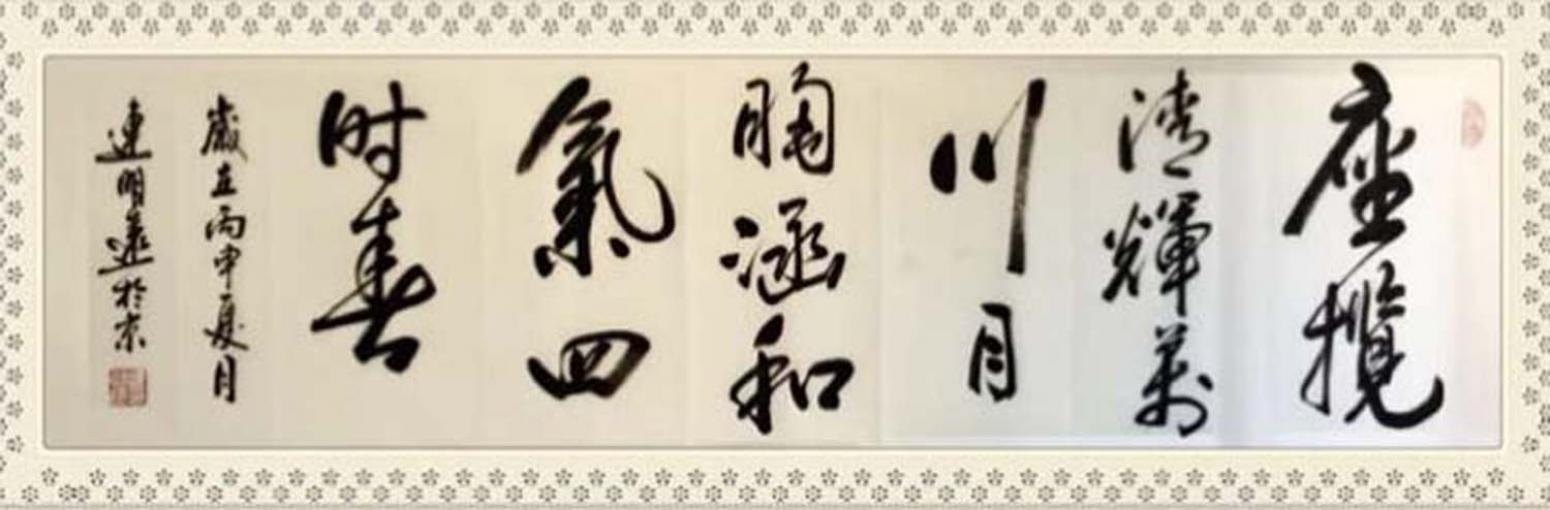 座揽
清輝萬
川月
胸涵和
氣四
时春
嵗在丙申夏月
連明遠於京